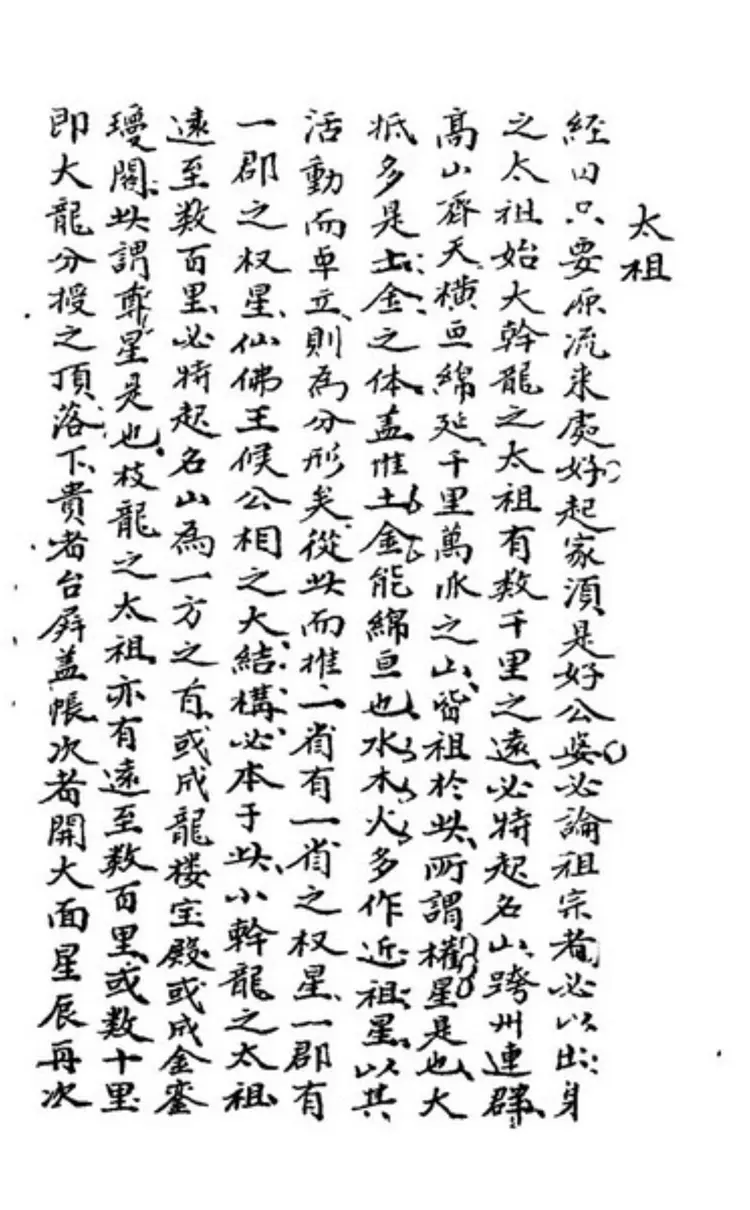 太祖
経曰只要原流来處好起家須是好公婆必論祖宗者必以出身
之太祖始大幹龍之太祖有数千里之遠必特起名山跨州連群
高山齊天橫亘綿延千里萬派之山皆祖於此所謂權星是也大
抵多是土金之体盖惟土金能綿亘也水木火多作近祖星以其
活動而卓立則為分形矣從此而推一省有一省之权星一郡有
一郡之权星仙佛王侯公相之大結構必本于此小幹龍之太祖
遠至数百里必特起名山為一方之首或成龍楼宝殿或成金銮
瓊閣此謂尊星是也枝龍之太祖亦有遠至数百里或数十里
即大龍分授之頂落下貴者台屏盖帳次者開大面星辰再次